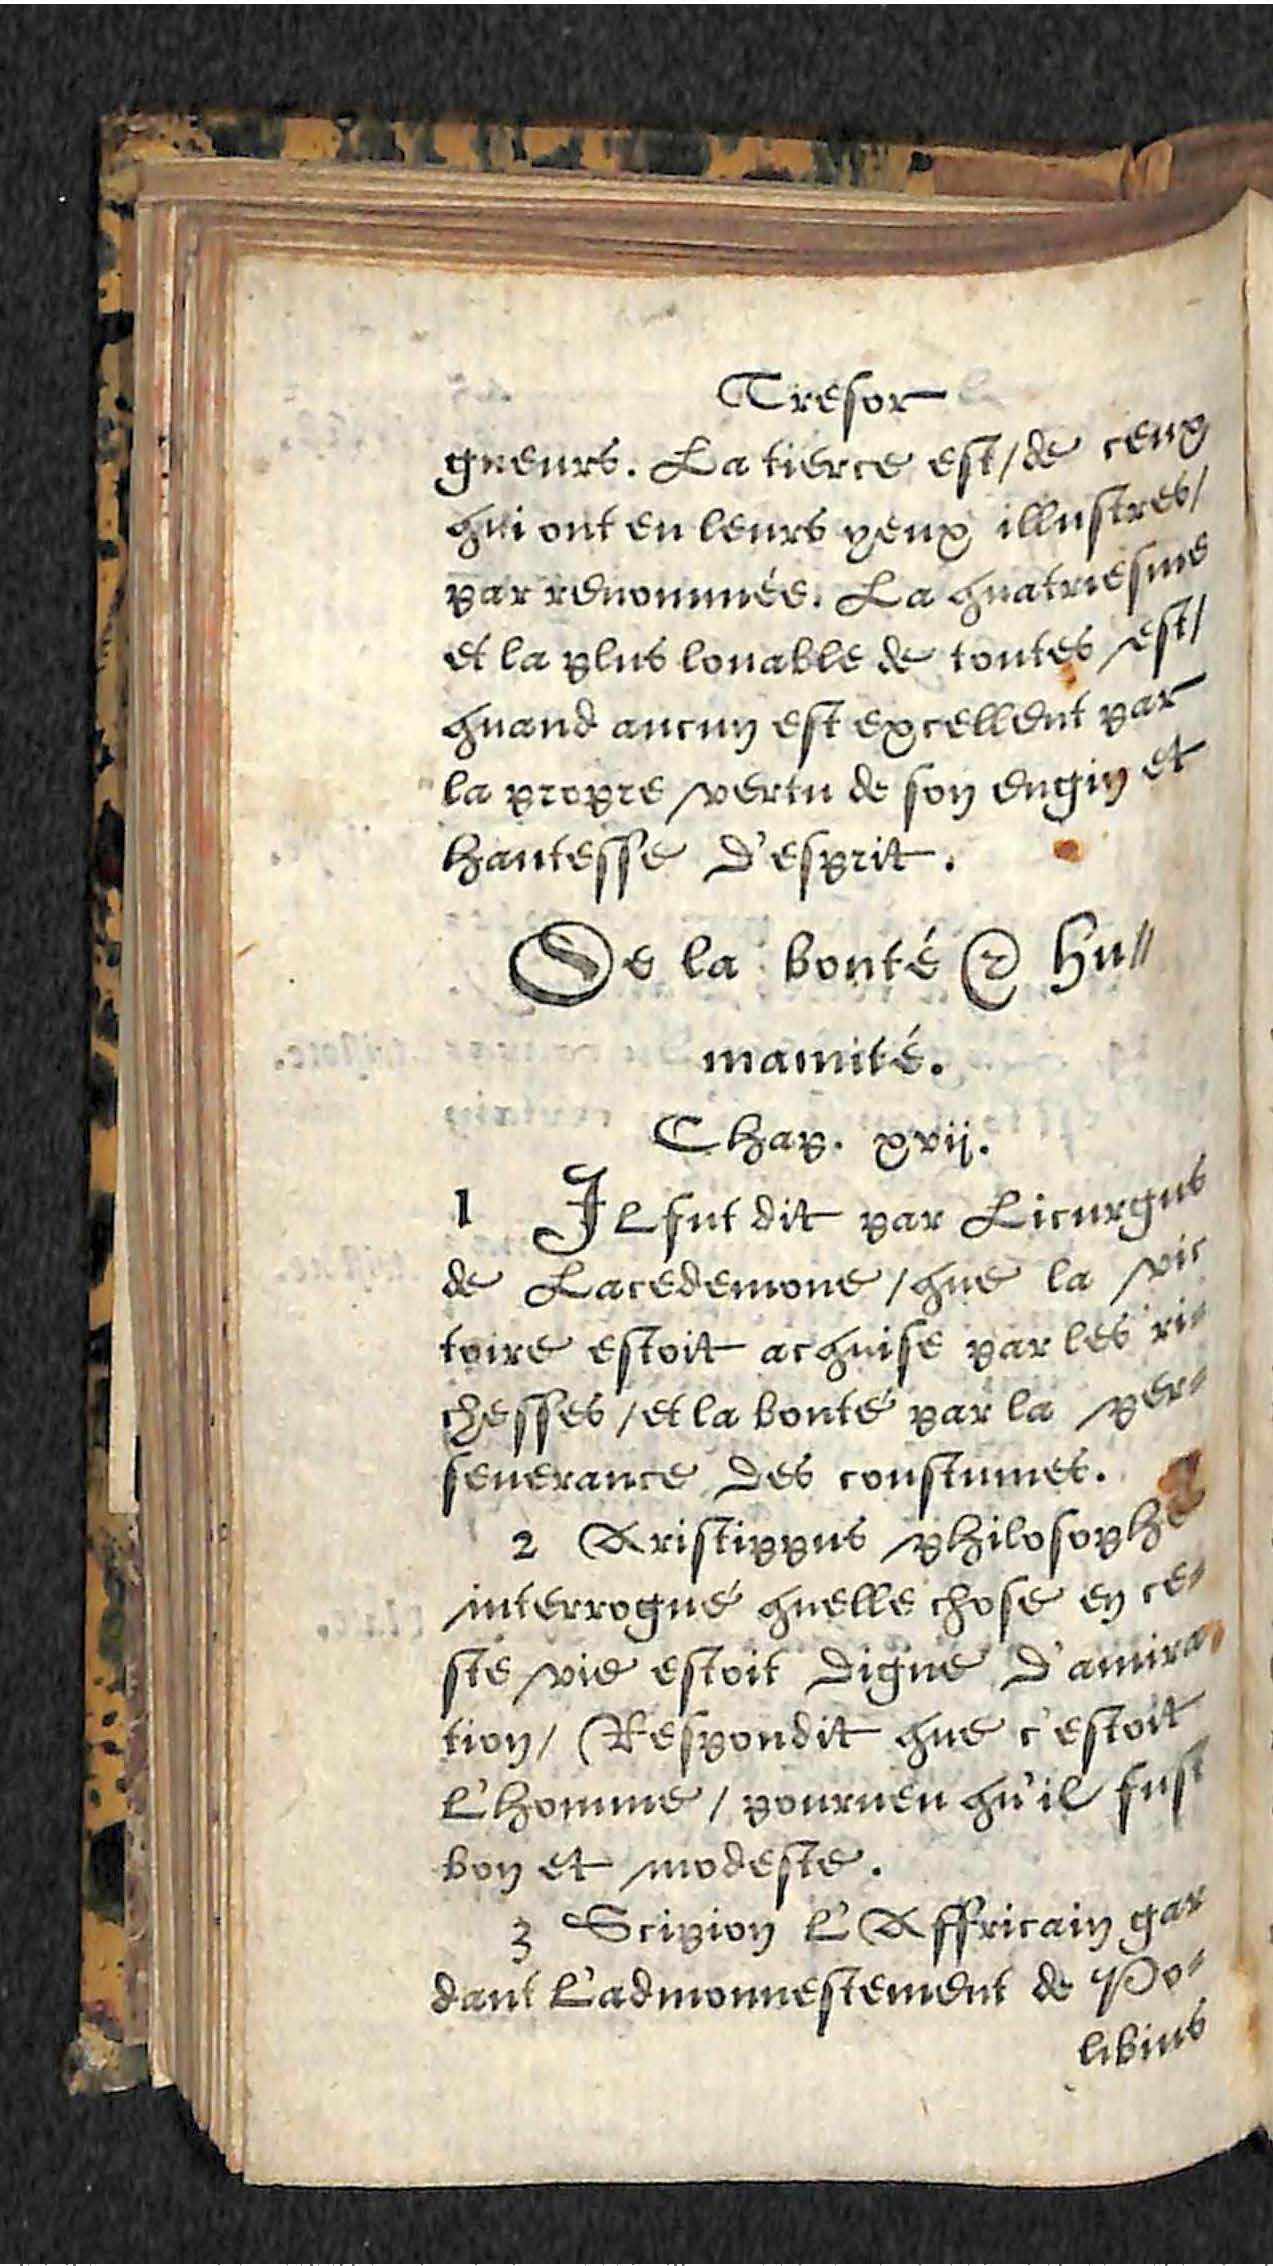 Tresor
gneurs. La tierce est/de ceux
qui ont eu leurs yeux illustres/
par renommée. La quatriesme
et la plus louable de toutes est/
quand aucun est excellent par
la propre vertu de son engin et
hautesse d'esprit.
De la bonté & hu//
manité.
Chap. xvij.
1 Il fut dit par Licurgus
de Lacedemone/que la vic
toire estoit acquise par les ri-
chesses/et la bonté par la per-
seuerance des coustumes.
2 Aristippus philosophe
interrogué quelle chose en ce-
ste vie estoit digne d'amira
tion/ Respondit que c'estoit
l'homme/pourueu qu'il fust
bon et modeste.
3 Scipion l'Affricain gar
dant l'admonnestement de Po-
libius